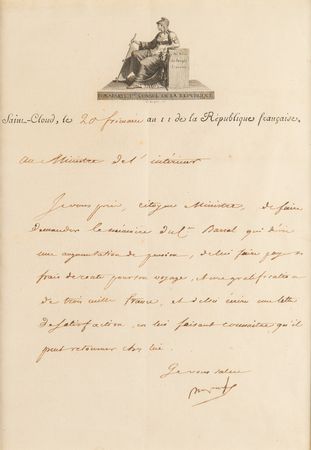 BONAPARTE, 1er CONSUL DE LA RÉPUBLIQUE
Saint-Cloud, le 20 frimaire an 11 de la République française.
au Ministre de l'intérieur
Je vous prie, citoyen Ministre, de faire
demander le mémoire du Cn Barral qui désire
une augmentation de pension, de lui faire payer
frais de route pour son voyage, et une gratification
de trois mille francs, et de lui écrire une lettre
de satisfaction, en lui faisant connaître qu'il
peut retourner chez lui.
Je vous salue